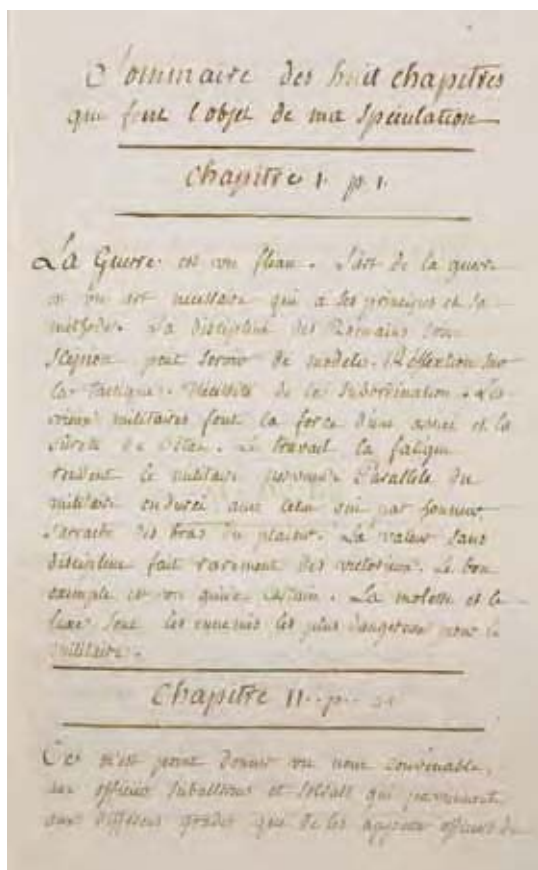 Sommaire des huit chapitres
qui font l'objet de ma spéculation
Chapitre I. p. 1.
La Guerre est un fleau. L'art de la guerre
est un art necessaire qui a ses principes et sa
methode. La discipline des Romains sous
Scipion peut servir de modele. Reflection sur
la Tactique. Necessité de la subordination. Les
vieux militaires font la force d'une armée et la
sûreté de l'Etat. Le travail la fatigue
rendent le militaire Parallele du
militaire endurci avec celui qui par honneur
s'arrache des bras du plaisir. La valeur sans
discipline fait rarement des victorieux. Le bon
exemple est un guide certain. La molesse et le
luxe sont les ennemis les plus dangereux pour le
militaire.
Chapitre II. p.
Ce n'est point donner un nom convenable,
aux officiers subalternes et soldats qui parviennent
aux differens grades que de les appeller officiers de